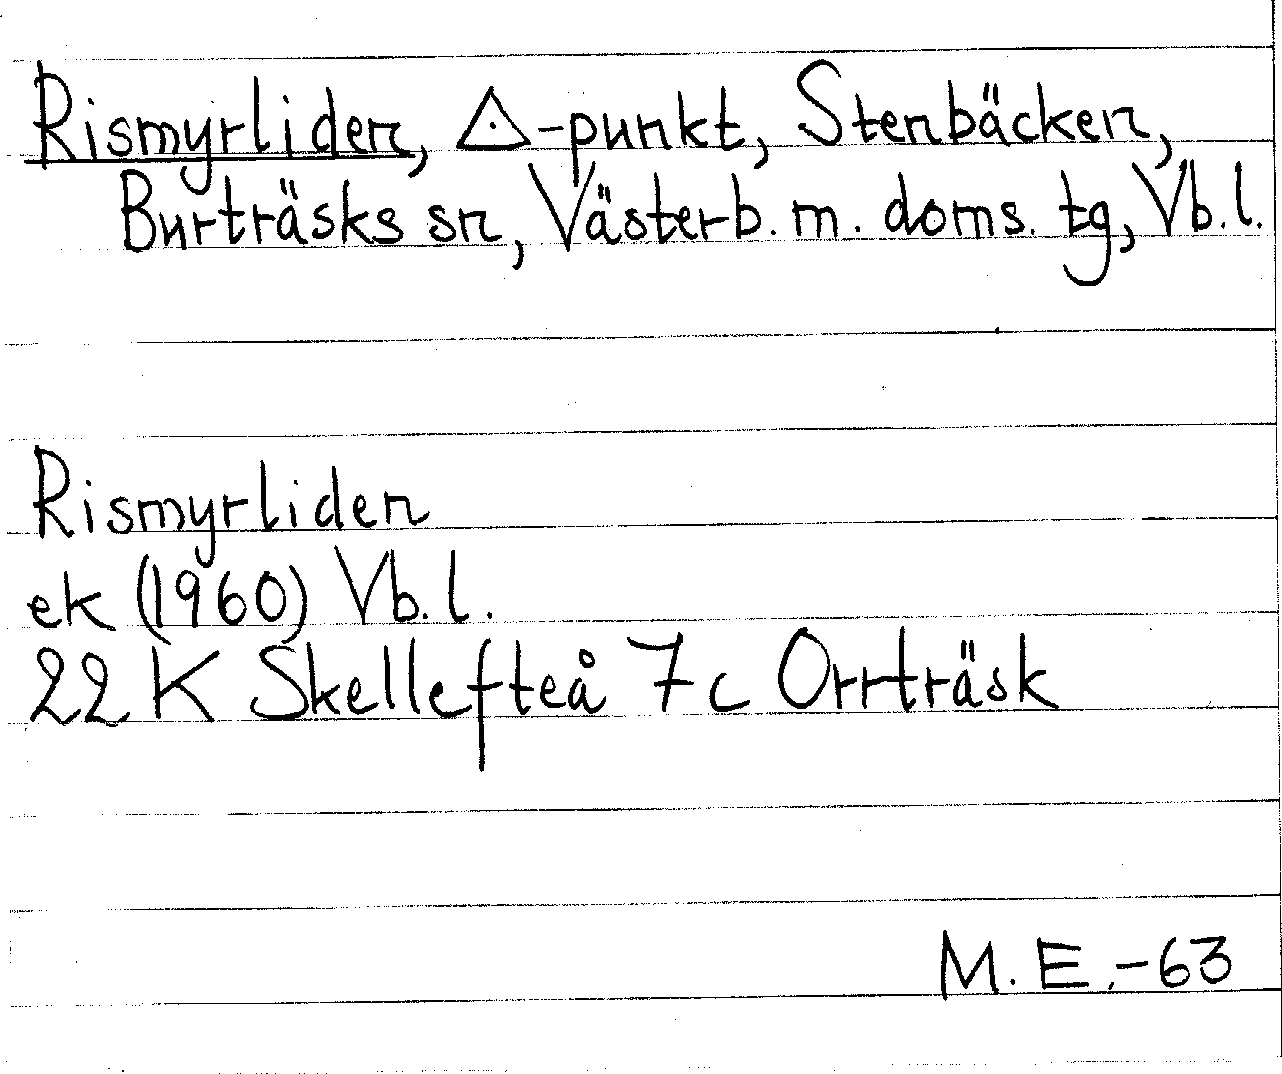 Rismyrliden, △-punkt, Stenbäcken,
Burträsks sn, Västerb. m. doms. tg, Vb. l.
Rismyrliden
ek (1960) Vb. l.
22 K Skellefteå 7c Orrträsk
M. E. -63